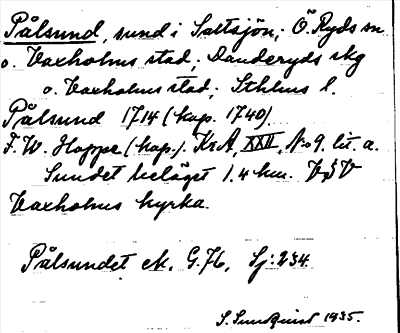 Pålsund, sund i Saltsjön; Ö. Ryds sn
o. Vaxholms stad; Danderyds skg
o. Vaxholms stad; Sthlms l.
Pålsund 1714 (kop. 1740).
F. W. Hoppe (kop.). KrA, XXII, No 9. lit. a.
Sundet beläget 1.4 km. V
Vaxholms kyrka.
Pålsundet ek. G. 76, Sj: 234
S. Sundquist 1935.